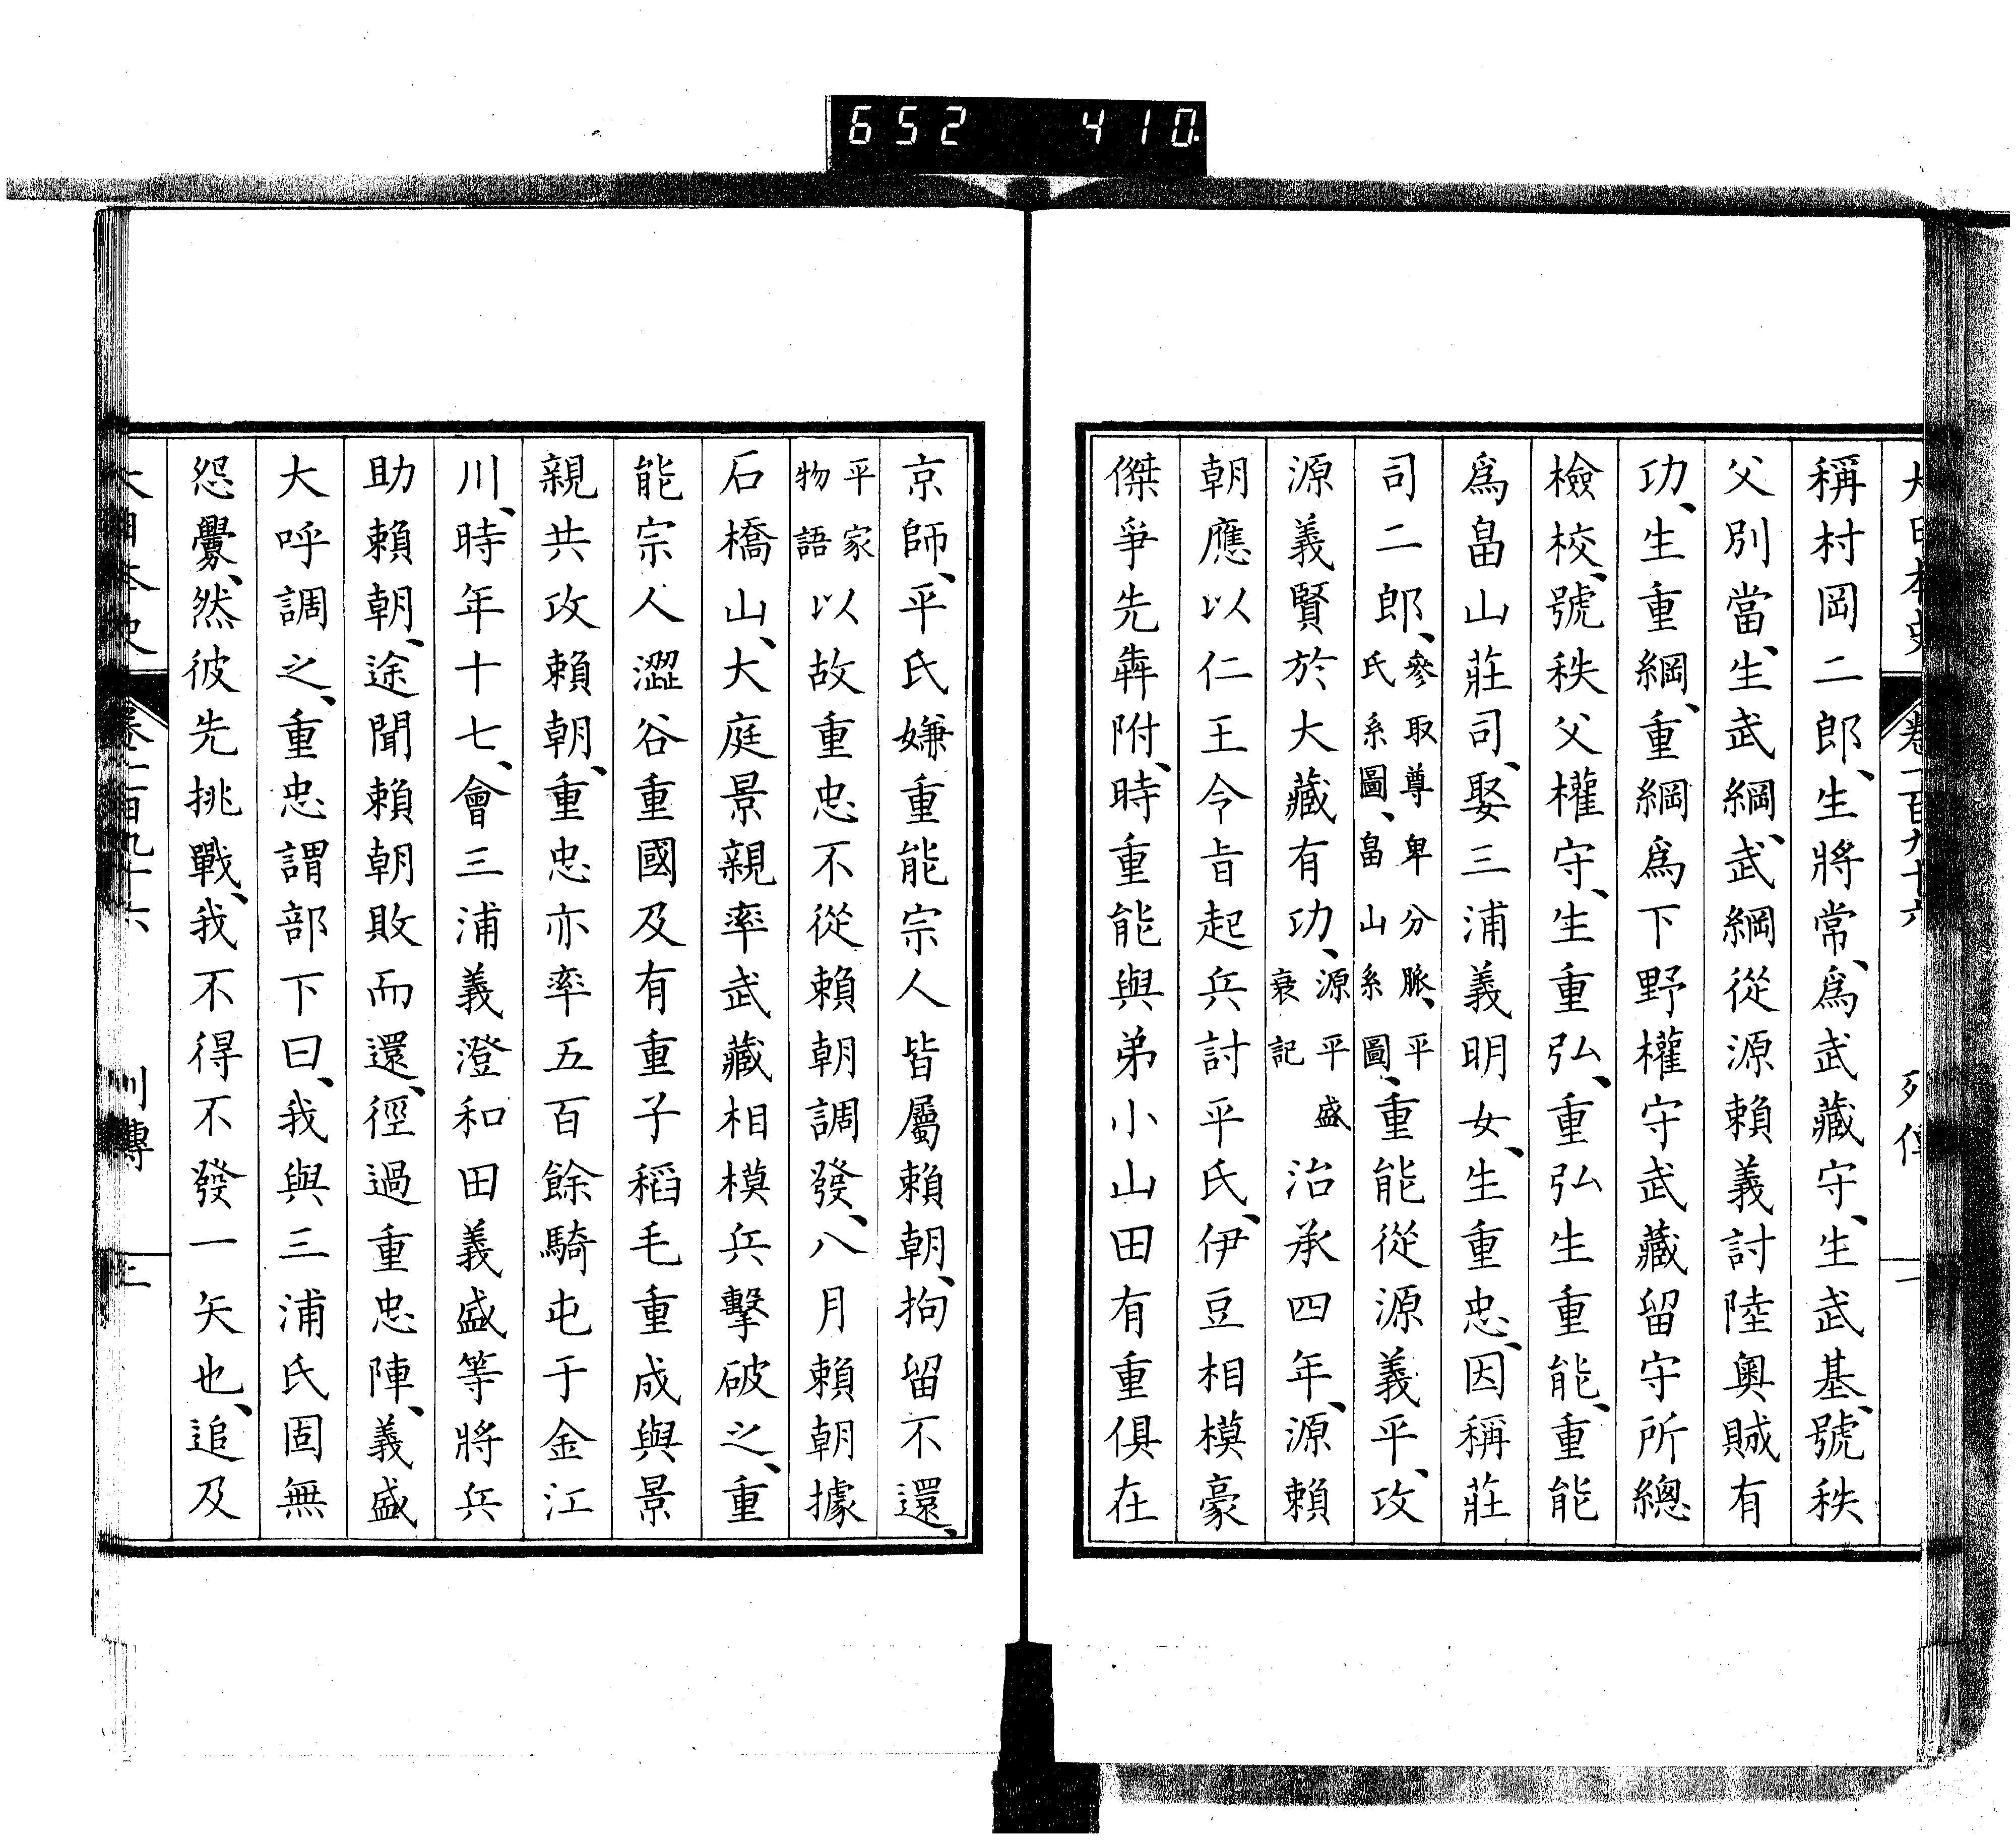 652 410
大日本史 卷一百九十六 列傳 一
稱村岡二郎、生將常、爲武藏守、生武基、號秩
父別當、生武綱、武綱從源賴義討陸奧賊有
功、生重綱、重綱爲下野權守武藏留守所總
檢校、號秩父權守、生重弘、重弘生重能、重能
爲畠山莊司、娶三浦義明女、生重忠、因稱莊
司二郎、參取尊卑分脈、平氏系圖、畠山系圖、重能從源義平、攻
源義賢於大藏有功、源平盛衰記治承四年、源賴
朝應以仁王令旨起兵討平氏、伊豆相模豪
傑爭先犇附、時重能與弟小山田有重俱在
京師、平氏嫌重能宗人皆屬賴朝、拘留不還、
平家物語以故重忠不從賴朝調發、八月賴朝據
石橋山、大庭景親率武藏相模兵擊破之、重
能宗人澀谷重國及有重子稻毛重成與景
親共攻賴朝、重忠亦率五百餘騎屯于金江
川、時年十七、會三浦義澄和田義盛等將兵
助賴朝、途聞賴朝敗而還、徑過重忠陣、義盛
大呼調之、重忠謂部下曰、我與三浦氏固無
怨釁、然彼先挑戰、我不得不發一矢也、追及
大日本史 卷一百九十六 列傳